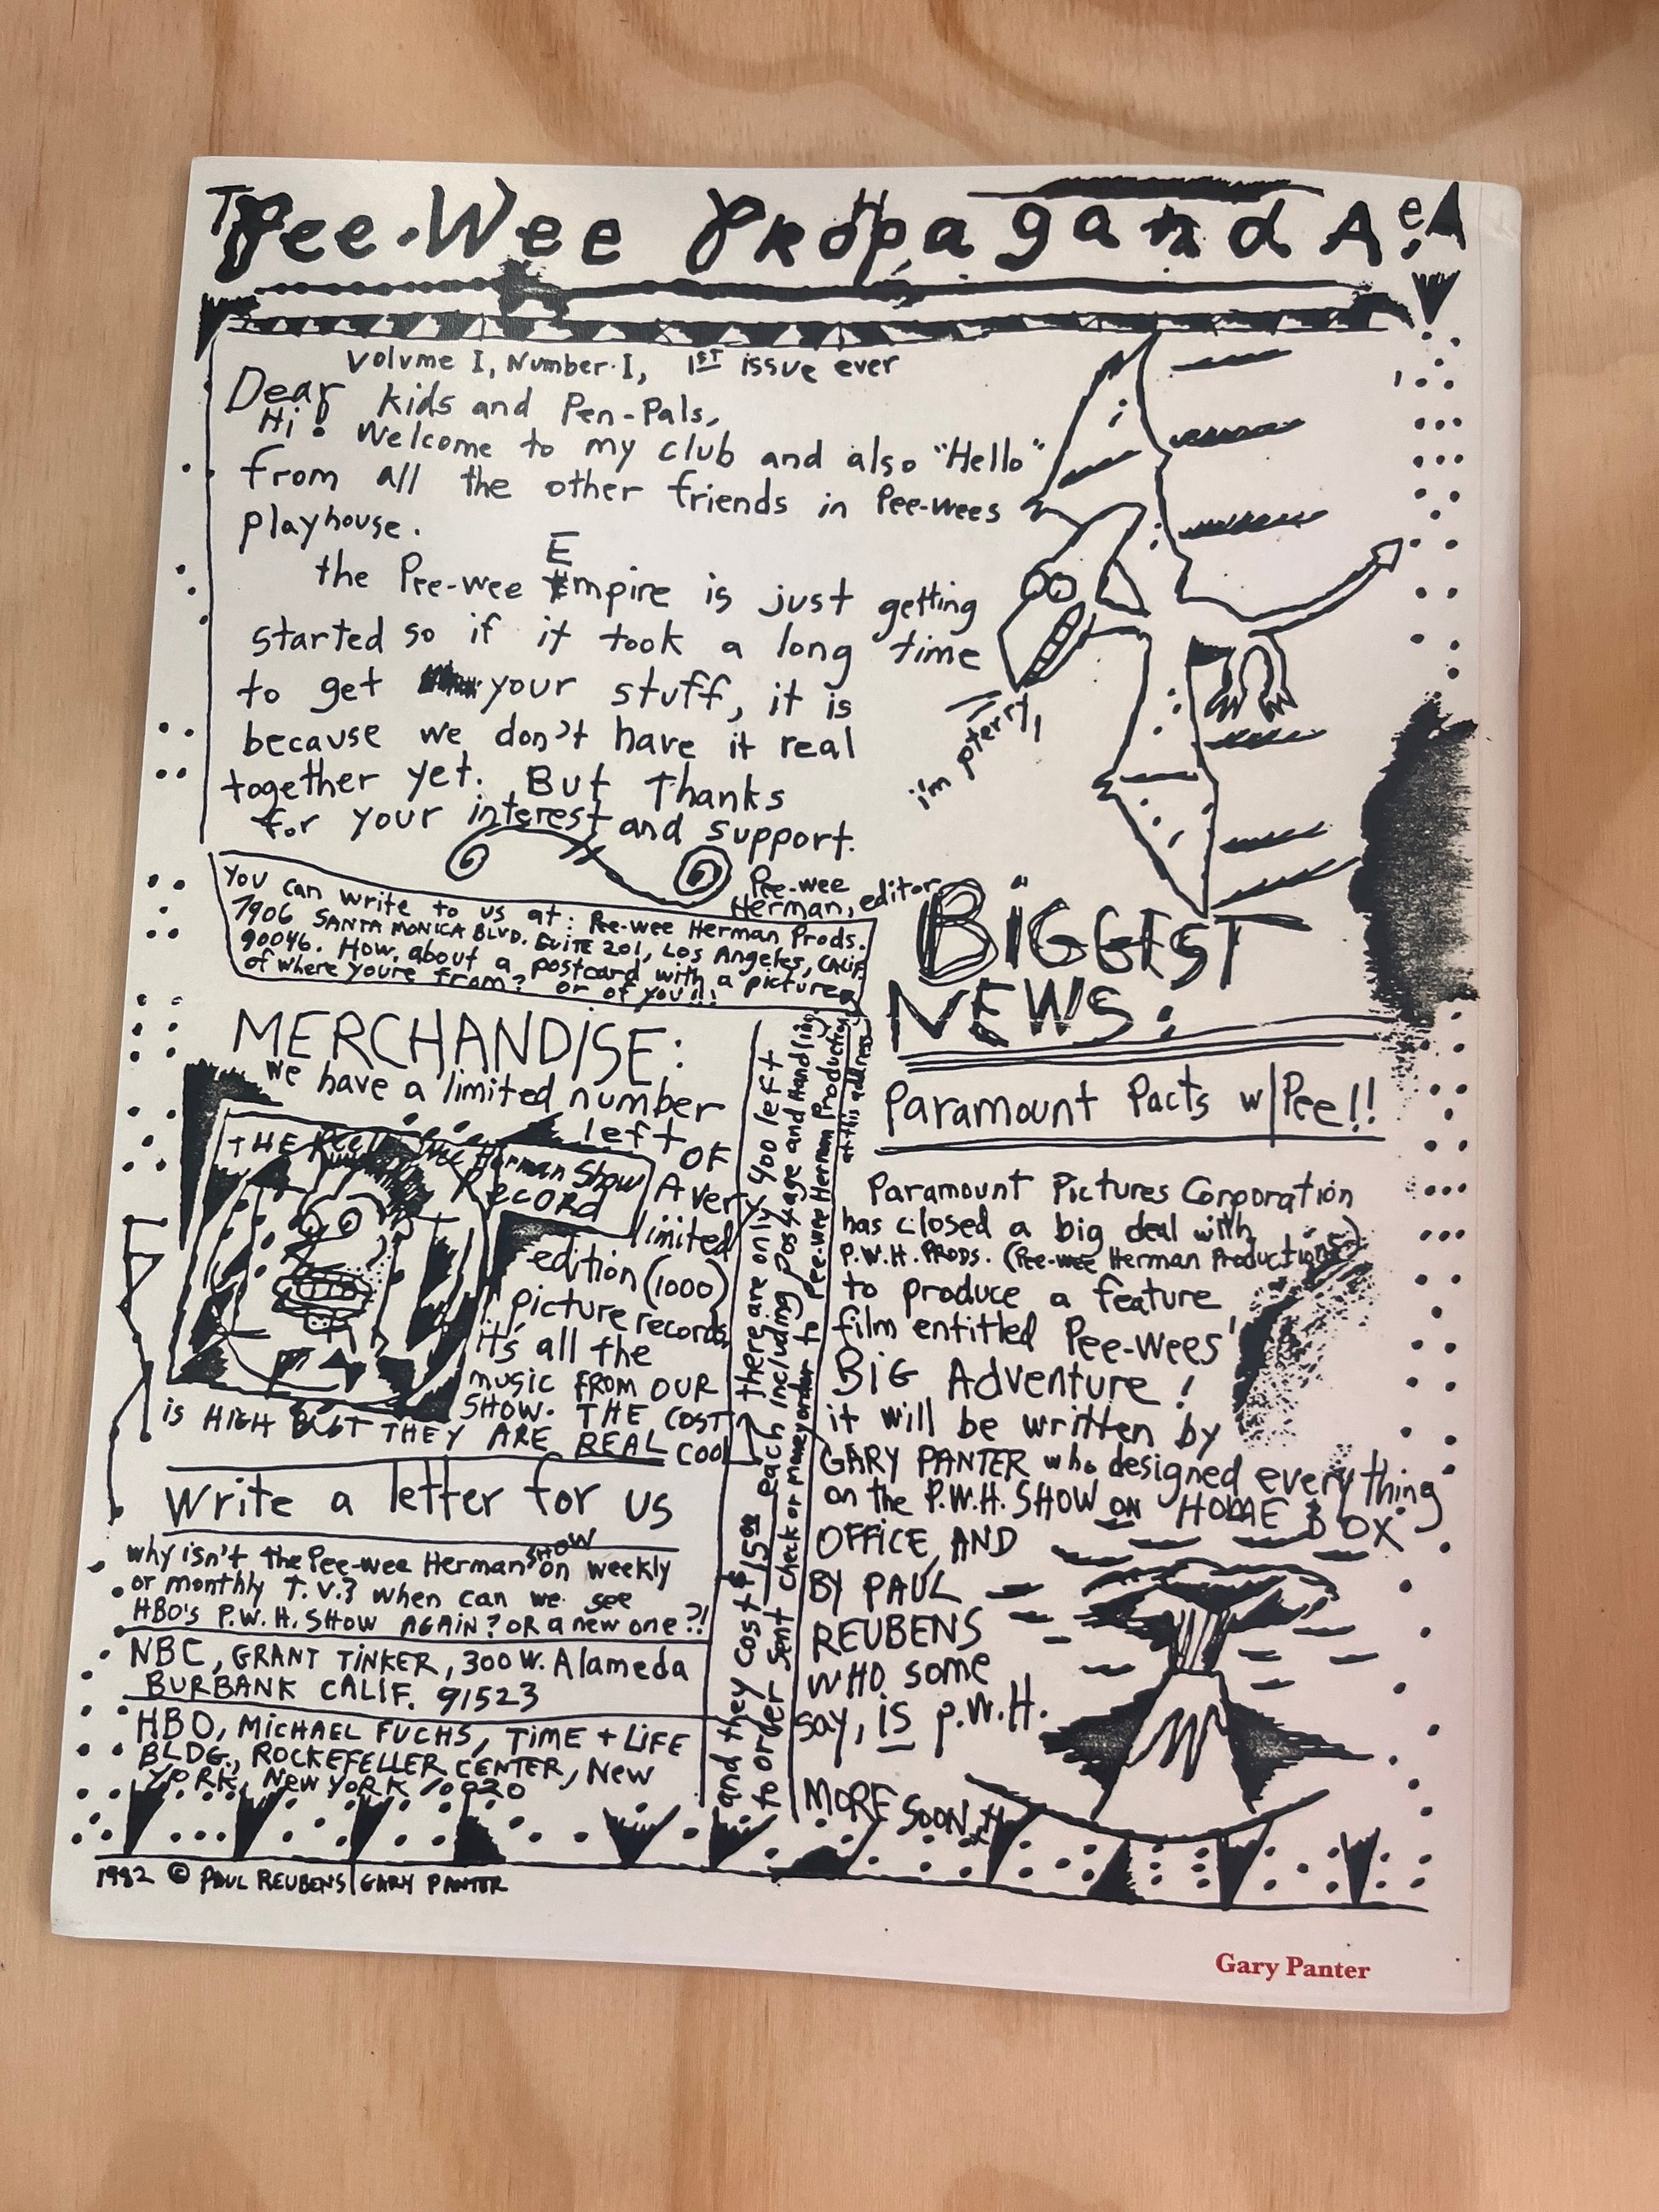 THe Pee-Wee PropagandA!
Volume I, Number I, 1ST issue ever
Dear kids and Pen-Pals,
Hi! Welcome to my club and also "Hello"
from all the other friends in Pee-wees
playhouse.
the Pee-wee Empire is just getting
started so if it took a long time
to get your stuff, it is
because we don't have it real
together yet. But Thanks
for your interest and support.
Pee-wee
Herman, editor
i'm pterry,
You can write to us at: Pee-wee Herman Prods.
7906 SANTA MONICA BLVD. SUITE 201, Los Angeles, CALIF
90046. How about a postcard with a picture
of where youre from? or of you!!!
MERCHANDISE:
we have a limited number
left OF
THE Pee Wee Herman Show
Record
A very
limited
edition (1000)
picture records
it's all the
music FROM OUR
SHOW. THE COST
is HIGH BUT THEY ARE REAL COOL
there are only 400 left
and they cost $15.00 each including postage and Handling
to order sent check or money order to Pee-wee Herman Productions
at this address
Write a letter for us
why isn't the Pee-wee Herman SHOW on weekly
or monthly T.V.? when can we see
HBO's P.W.H. SHOW AGAIN? OR a new one?!
NBC, GRANT TINKER, 300 W. Alameda
BURBANK CALIF. 91523
HBO, MICHAEL FUCHS, TIME + LIFE
BLDG., ROCKEFELLER CENTER, New
YORK, New YORK 10020
BiGGEST
NEWS:
Paramount Pacts w/Pee!!
Paramount Pictures Corporation
has closed a big deal with
P.W.H. PRODS. (Pee-wee Herman Productions)
to produce a feature
film entitled Pee-wees'
BIG Adventure!
it will be written by
GARY PANTER who designed everything
on the P.W.H. SHOW on HOME BOX
OFFICE, AND
BY PAUL
REUBENS
WHO some
say, is P.W.H.
MORE SOON
1982 © PAUL REUBENS/GARY PANTER
Gary Panter